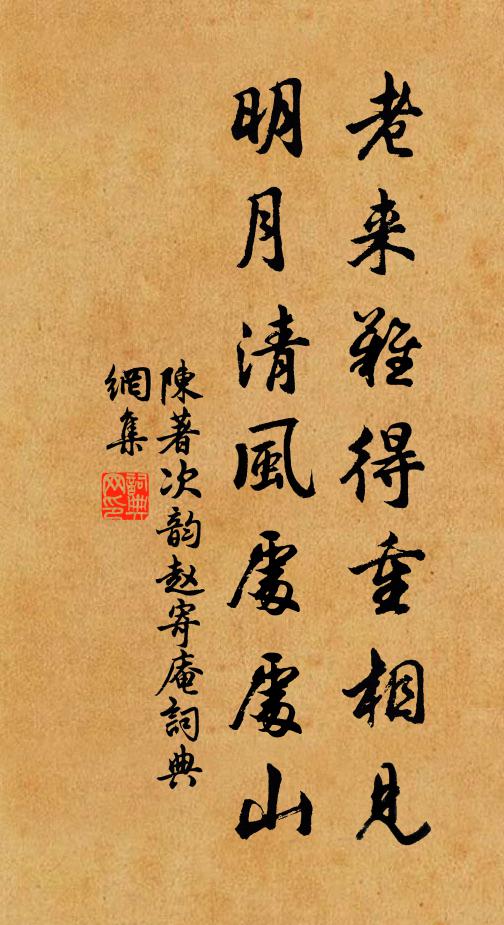 老来難得重相見
明月清風處處山
陳著次韵赵寄庵詞典
網集
詞典
网印